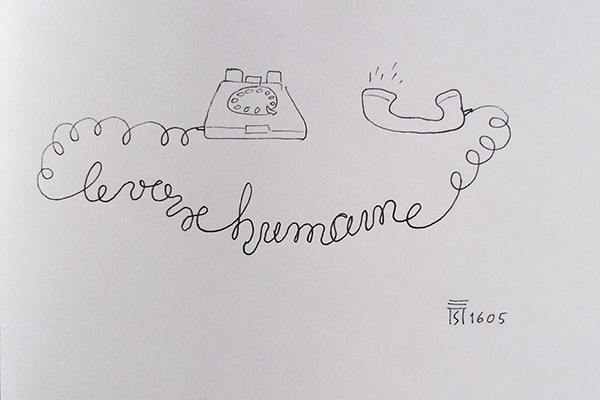 le voix humaine
1605